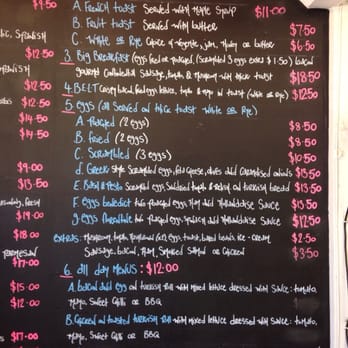 $9.50
A. French toast Served with maple Syrup $11.00
B. Fruit toast Served with butter $7.50
C. White or Rye Choice of vegemite, jam, Honey or butter $6.50
Spanish
$12.50
3. Big Breakfast (eggs fried or poached, (scrambled 3 eggs extra $1.50) bacon
Sausage, tomato & Mushroom with thick toast $18.50
$12.50
4. BELT bacon, egg, lettuce, tomato & mayo on toast (White or Rye) $12.50
$12.50
5. eggs (all Served on thick toast White or Rye)
$14.50
A. Poached (2 eggs) $8.50
$14.50
B. fried (2 eggs) $8.50
C. Scrambled (3 eggs) $10.50
$9.00
d. Greek style Scrambled eggs, feta cheese, olives and Caramelised onions $15.50
$13.50
E. Scrambled eggs turkish bread $13.50
F. eggs benedict two poached eggs, Ham and Hollandaise Sauce $13.50
$19.00
g. eggs florentine two poached eggs, Spinach and Hollandaise Sauce $12.50
$18.00
extras: Mushroom, tomato, eggs, toast, baked beans, ice-cream $2.50
Parmesan
$17.00
Sausage, bacon, Ham, Smoked Salmon or Chicken $3.50
6. all day menus: $12.00
$15.00
A. bacon and egg on turkish roll with mixed lettuce dressed with Sauce: tomato,
$12.00
Mayo, Sweet Chilli or BBQ
B. Chicken on toasted turkish roll with mixed lettuce dressed with Sauce: tomato,
$17.00
Mayo, Sweet Chilli or BBQ